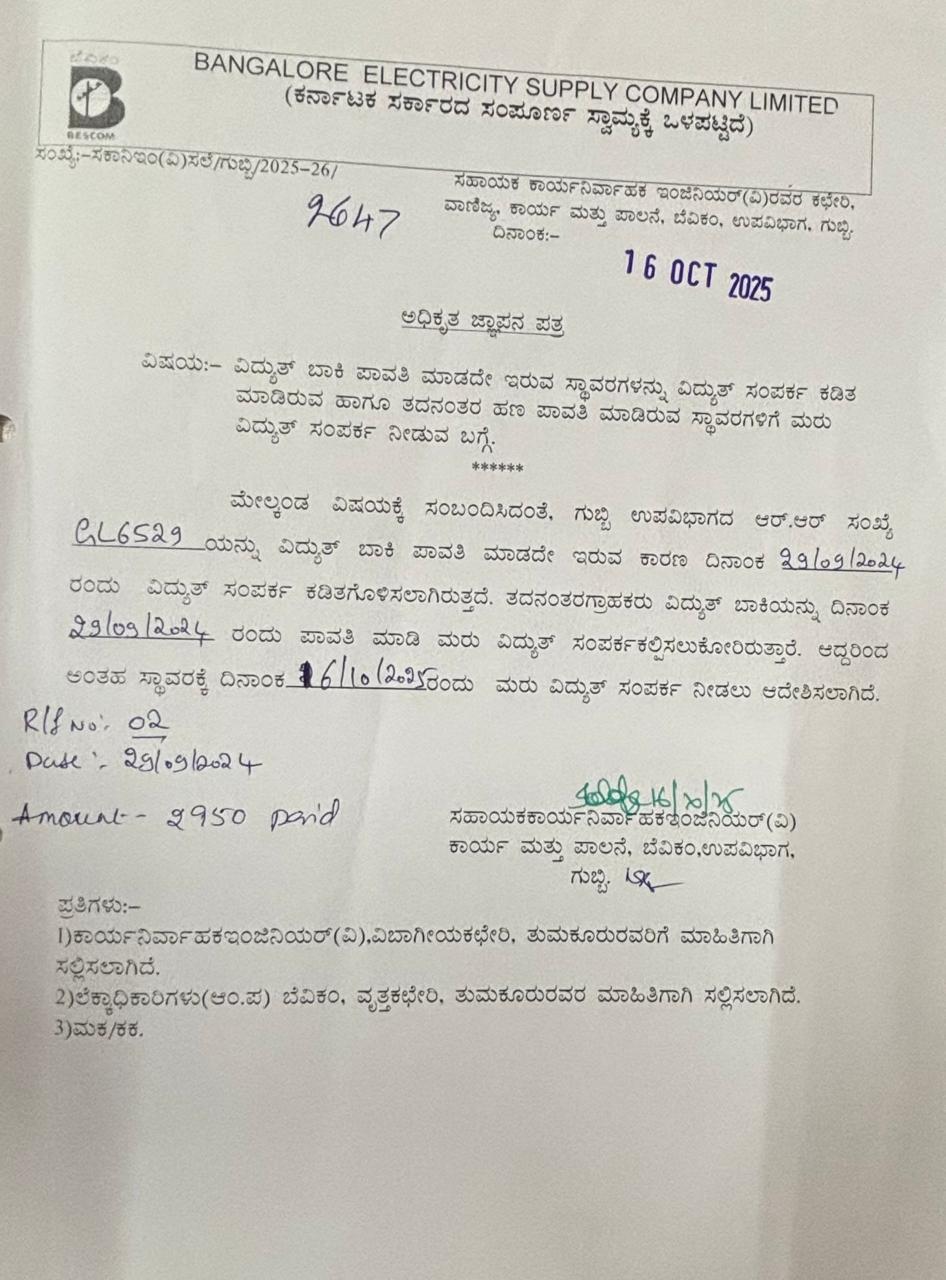 ಬೆವಿಕಂ
B
BESCOM
BANGALORE ELECTRICITY SUPPLY COMPANY LIMITED
(ಕರ್ನಾಟಕ ಸರ್ಕಾರದ ಸಂಪೂರ್ಣ ಸ್ವಾಮ್ಯಕ್ಕೆ ಒಳಪಟ್ಟಿದೆ)
ಸಂಖ್ಯೆ:-ಸಕಾನಿಇಂ(ವಿ)ಸಲೆ/ಗುಬ್ಬಿ/2025-26/
2647
ಸಹಾಯಕ ಕಾರ್ಯನಿರ್ವಾಹಕ ಇಂಜಿನಿಯರ್(ವಿ)ರವರ ಕಛೇರಿ,
ವಾಣಿಜ್ಯ, ಕಾರ್ಯ ಮತ್ತು ಪಾಲನೆ, ಬೆವಿಕಂ, ಉಪವಿಭಾಗ, ಗುಬ್ಬಿ.
ದಿನಾಂಕ:-
16 OCT 2025
ಅಧಿಕೃತ ಜ್ಞಾಪನ ಪತ್ರ
ವಿಷಯ:- ವಿದ್ಯುತ್ ಬಾಕಿ ಪಾವತಿ ಮಾಡದೇ ಇರುವ ಸ್ಥಾವರಗಳನ್ನು ವಿದ್ಯುತ್ ಸಂಪರ್ಕ ಕಡಿತ
ಮಾಡಿರುವ ಹಾಗೂ ತದನಂತರ ಹಣ ಪಾವತಿ ಮಾಡಿರುವ ಸ್ಥಾವರಗಳಿಗೆ ಮರು
ವಿದ್ಯುತ್ ಸಂಪರ್ಕ ನೀಡುವ ಬಗ್ಗೆ.
******
ಮೇಲ್ಕಂಡ ವಿಷಯಕ್ಕೆ ಸಂಬಂದಿಸಿದಂತೆ, ಗುಬ್ಬಿ ಉಪವಿಭಾಗದ ಆರ್.ಆರ್ ಸಂಖ್ಯೆ
GL6529 ಯನ್ನು ವಿದ್ಯುತ್ ಬಾಕಿ ಪಾವತಿ ಮಾಡದೇ ಇರುವ ಕಾರಣ ದಿನಾಂಕ 29/09/2024
ರಂದು ವಿದ್ಯುತ್ ಸಂಪರ್ಕ ಕಡಿತಗೊಳಿಸಲಾಗಿರುತ್ತದೆ. ತದನಂತರಗ್ರಾಹಕರು ವಿದ್ಯುತ್ ಬಾಕಿಯನ್ನು ದಿನಾಂಕ
29/09/2024 ರಂದು ಪಾವತಿ ಮಾಡಿ ಮರು ವಿದ್ಯುತ್ ಸಂಪರ್ಕಕಲ್ಪಿಸಲುಕೋರಿರುತ್ತಾರೆ. ಆದ್ದರಿಂದ
ಅಂತಹ ಸ್ಥಾವರಕ್ಕೆ ದಿನಾಂಕ 16/10/2025ರಂದು ಮರು ವಿದ್ಯುತ್ ಸಂಪರ್ಕ ನೀಡಲು ಆದೇಶಿಸಲಾಗಿದೆ.
R/f No:- 02
Date :- 29/09/2024
Amount - 2950 paid
ಸಹಾಯಕಕಾರ್ಯನಿರ್ವಾಹಕಇಂಜಿನಿಯರ್(ವಿ)
ಕಾರ್ಯ ಮತ್ತು ಪಾಲನೆ, ಬೆವಿಕಂ,ಉಪವಿಭಾಗ,
ಗುಬ್ಬಿ.
ಪ್ರತಿಗಳು:-
1)ಕಾರ್ಯನಿರ್ವಾಹಕಇಂಜಿನಿಯರ್(ವಿ),ವಿಬಾಗೀಯಕಛೇರಿ, ತುಮಕೂರುರವರಿಗೆ ಮಾಹಿತಿಗಾಗಿ
ಸಲ್ಲಿಸಲಾಗಿದೆ.
2)ಲೆಕ್ಕಾಧಿಕಾರಿಗಳು(ಆಂ.ಪ) ಬೆವಿಕಂ, ವೃತ್ತಕಛೇರಿ, ತುಮಕೂರುರವರ ಮಾಹಿತಿಗಾಗಿ ಸಲ್ಲಿಸಲಾಗಿದೆ.
3)ಮಕ/ಕಕ.